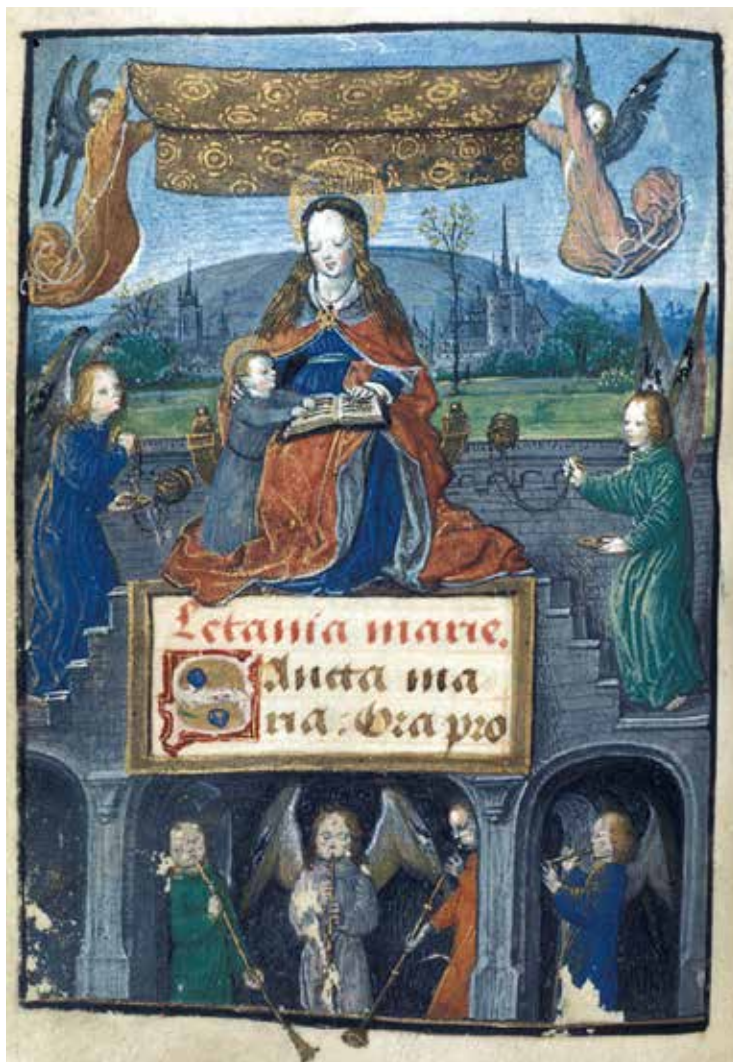 Letania marie.
Sancta ma
ria. Ora pro